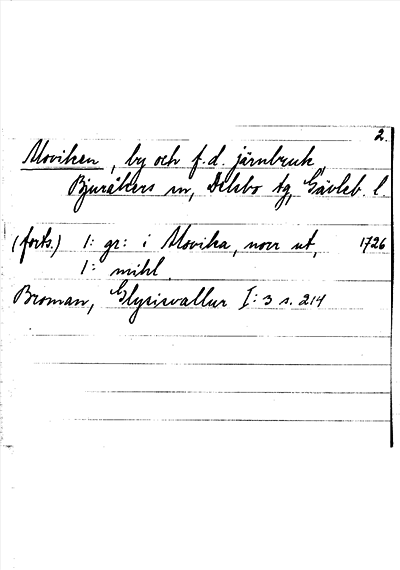 2.
Moviken, by och f.d. järnbruk,
Bjuråkers sn, Delsbo tg, Gävleb. l
(forts.) 1: gr: i Movika, norr ut, 1726
1: mihl.
Broman, Glysisvallur I: 3 s. 214